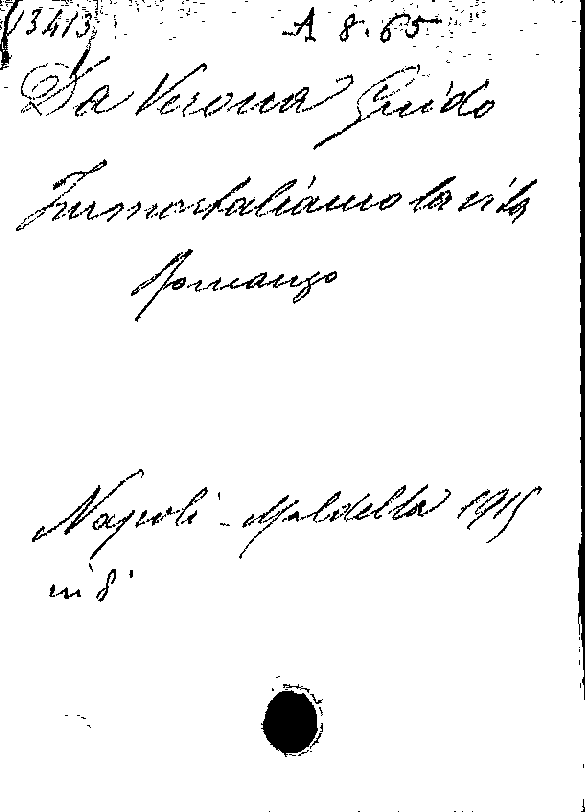 13413 A 8.65
Da Verona Guido
Immortaliamo la vita
Romanzo
Napoli - Maldella 1915
in 8°